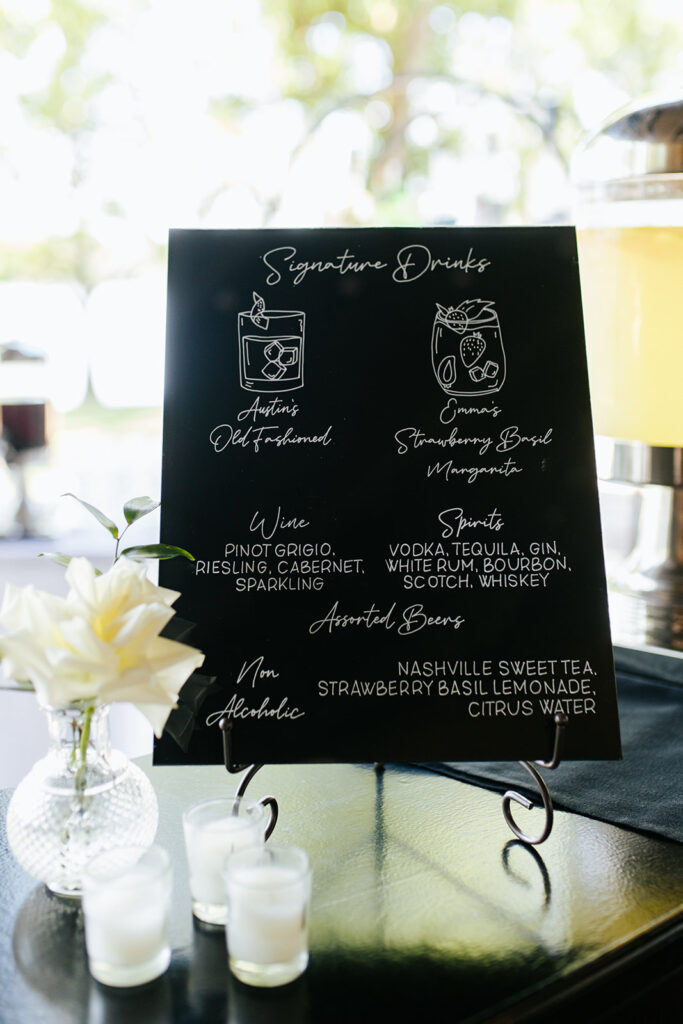 Signature Drinks
Austin's
Old Fashioned
Emma's
Strawberry Basil
Margarita
Wine
PINOT GRIGIO,
RIESLING, CABERNET,
SPARKLING
Spirits
VODKA, TEQUILA, GIN,
WHITE RUM, BOURBON,
SCOTCH, WHISKEY
Assorted Beers
Non
Alcoholic
NASHVILLE SWEET TEA,
STRAWBERRY BASIL LEMONADE,
CITRUS WATER